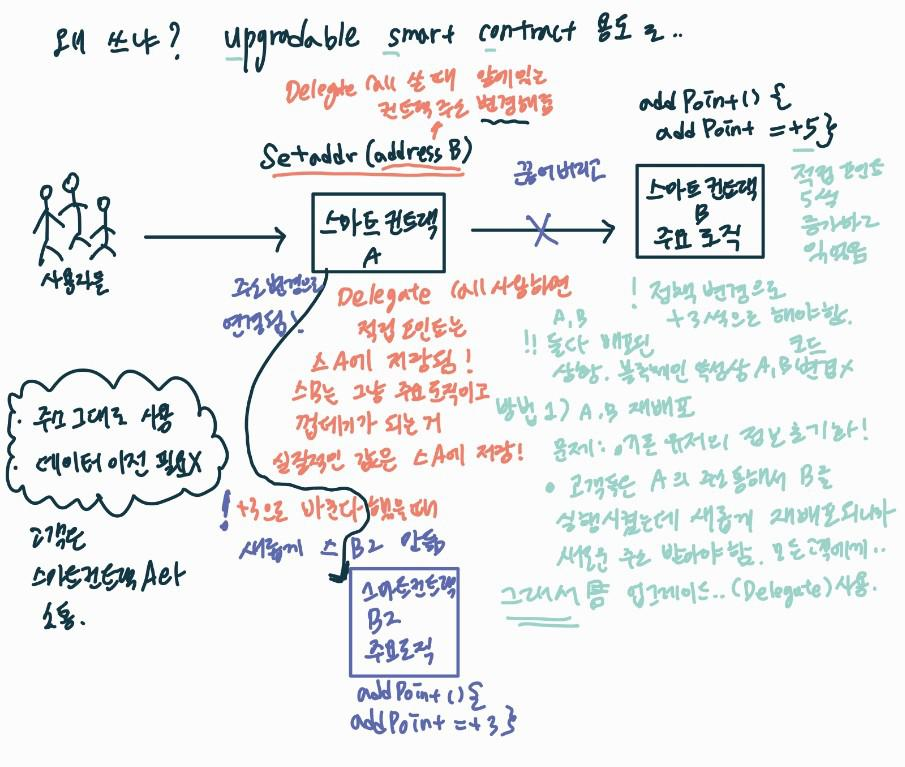 왜 쓰냐? upgradable smart contract 용도로..
Delegate call 쓸 때 앞에있는
컨트랙 주소 변경해줌
Setaddr (address B)
addPoint() {
addPoint =+5}
끊어버리고
스마트컨트랙
A
스마트컨트랙
B
주요로직
적립포인트
5씩
증가하고
있었음
사용자들
주소변경으로
연결됨!
Delegate Call 사용하면
적립포인트는
스A에 저장됨!
스B는 그냥 주요로직이고
껍데기가 되는 거
실질적인 값은 스A에 저장!
! 정책 변경으로
+3씩으로 해야함.
A,B
!! 둘다 배포된 코드
상황. 블록체인 특성상 A,B 변경X
방법 1) A,B 재배포
문제: 기존 유저의 정보 초기화!
• 고객들은 A의 주소 통해서 B를
실행시켰는데 새롭게 재배포되니까
새로운 주소 받아야함. 모든고객에게..
그래서 업그레이드..(Delegate) 사용.
· 주소 그대로 사용
· 데이터 이전 필요X
고객은
스마트컨트랙 A와
소통.
! +3으로 바꾼다 했을때
새롭게 스B2 만듦
스마트컨트랙
B2
주요로직
addPoint() {
addPoint =+3}